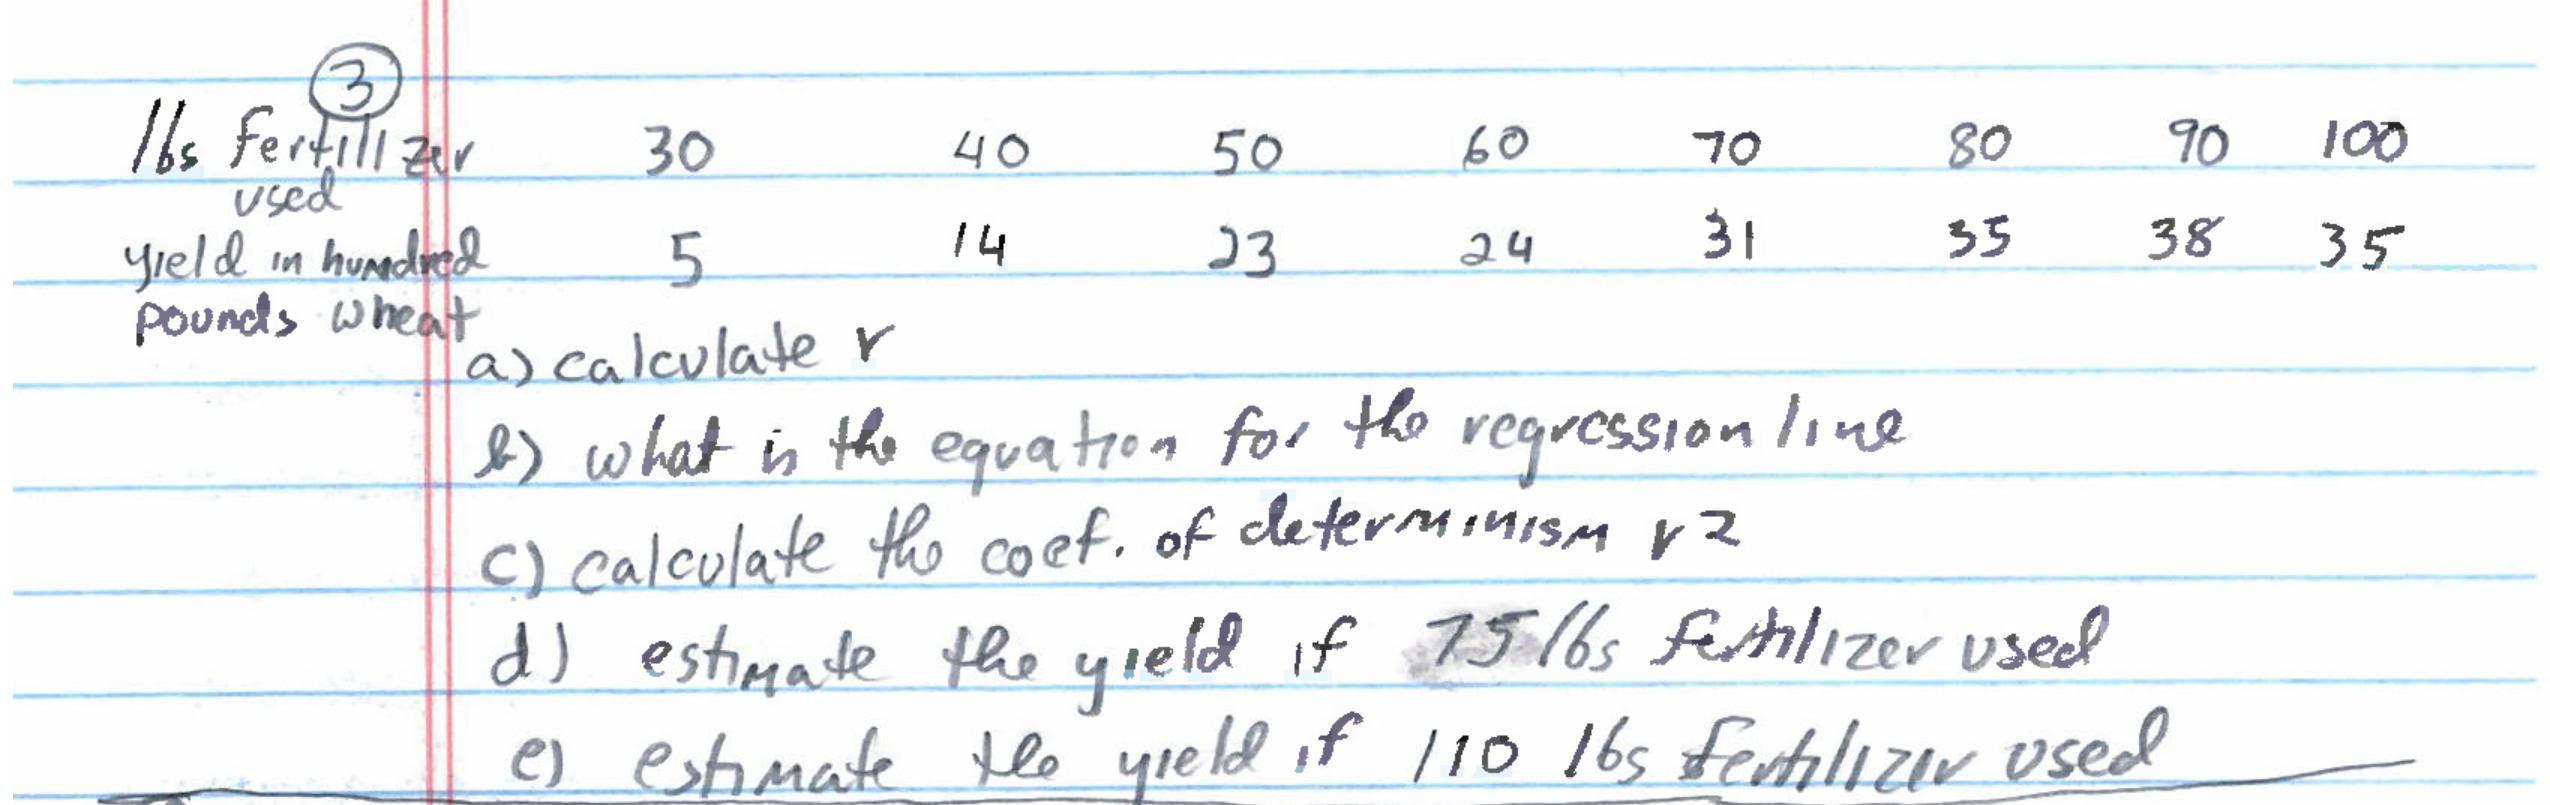 3
lbs fertillizer 30 40 50 60 70 80 90 100
used
yield in hundred 5 14 23 24 31 35 38 35
pounds wheat
a) calculate r
b) what is the equation for the regression line
c) calculate the coef. of determinism r2
d) estimate the yield if 75 lbs fertilizer used
e) estimate the yield if 110 lbs fertilizer used